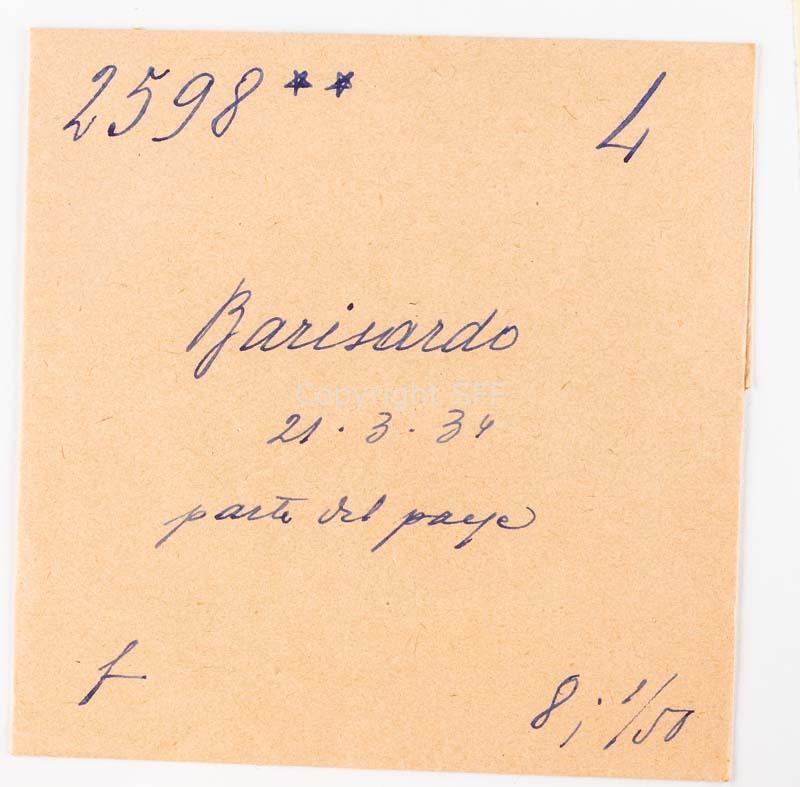 2598 ** 4
Barisardo
Copyright SFF
21 . 3 . 34
parte del paese
f
8 ; 1/50